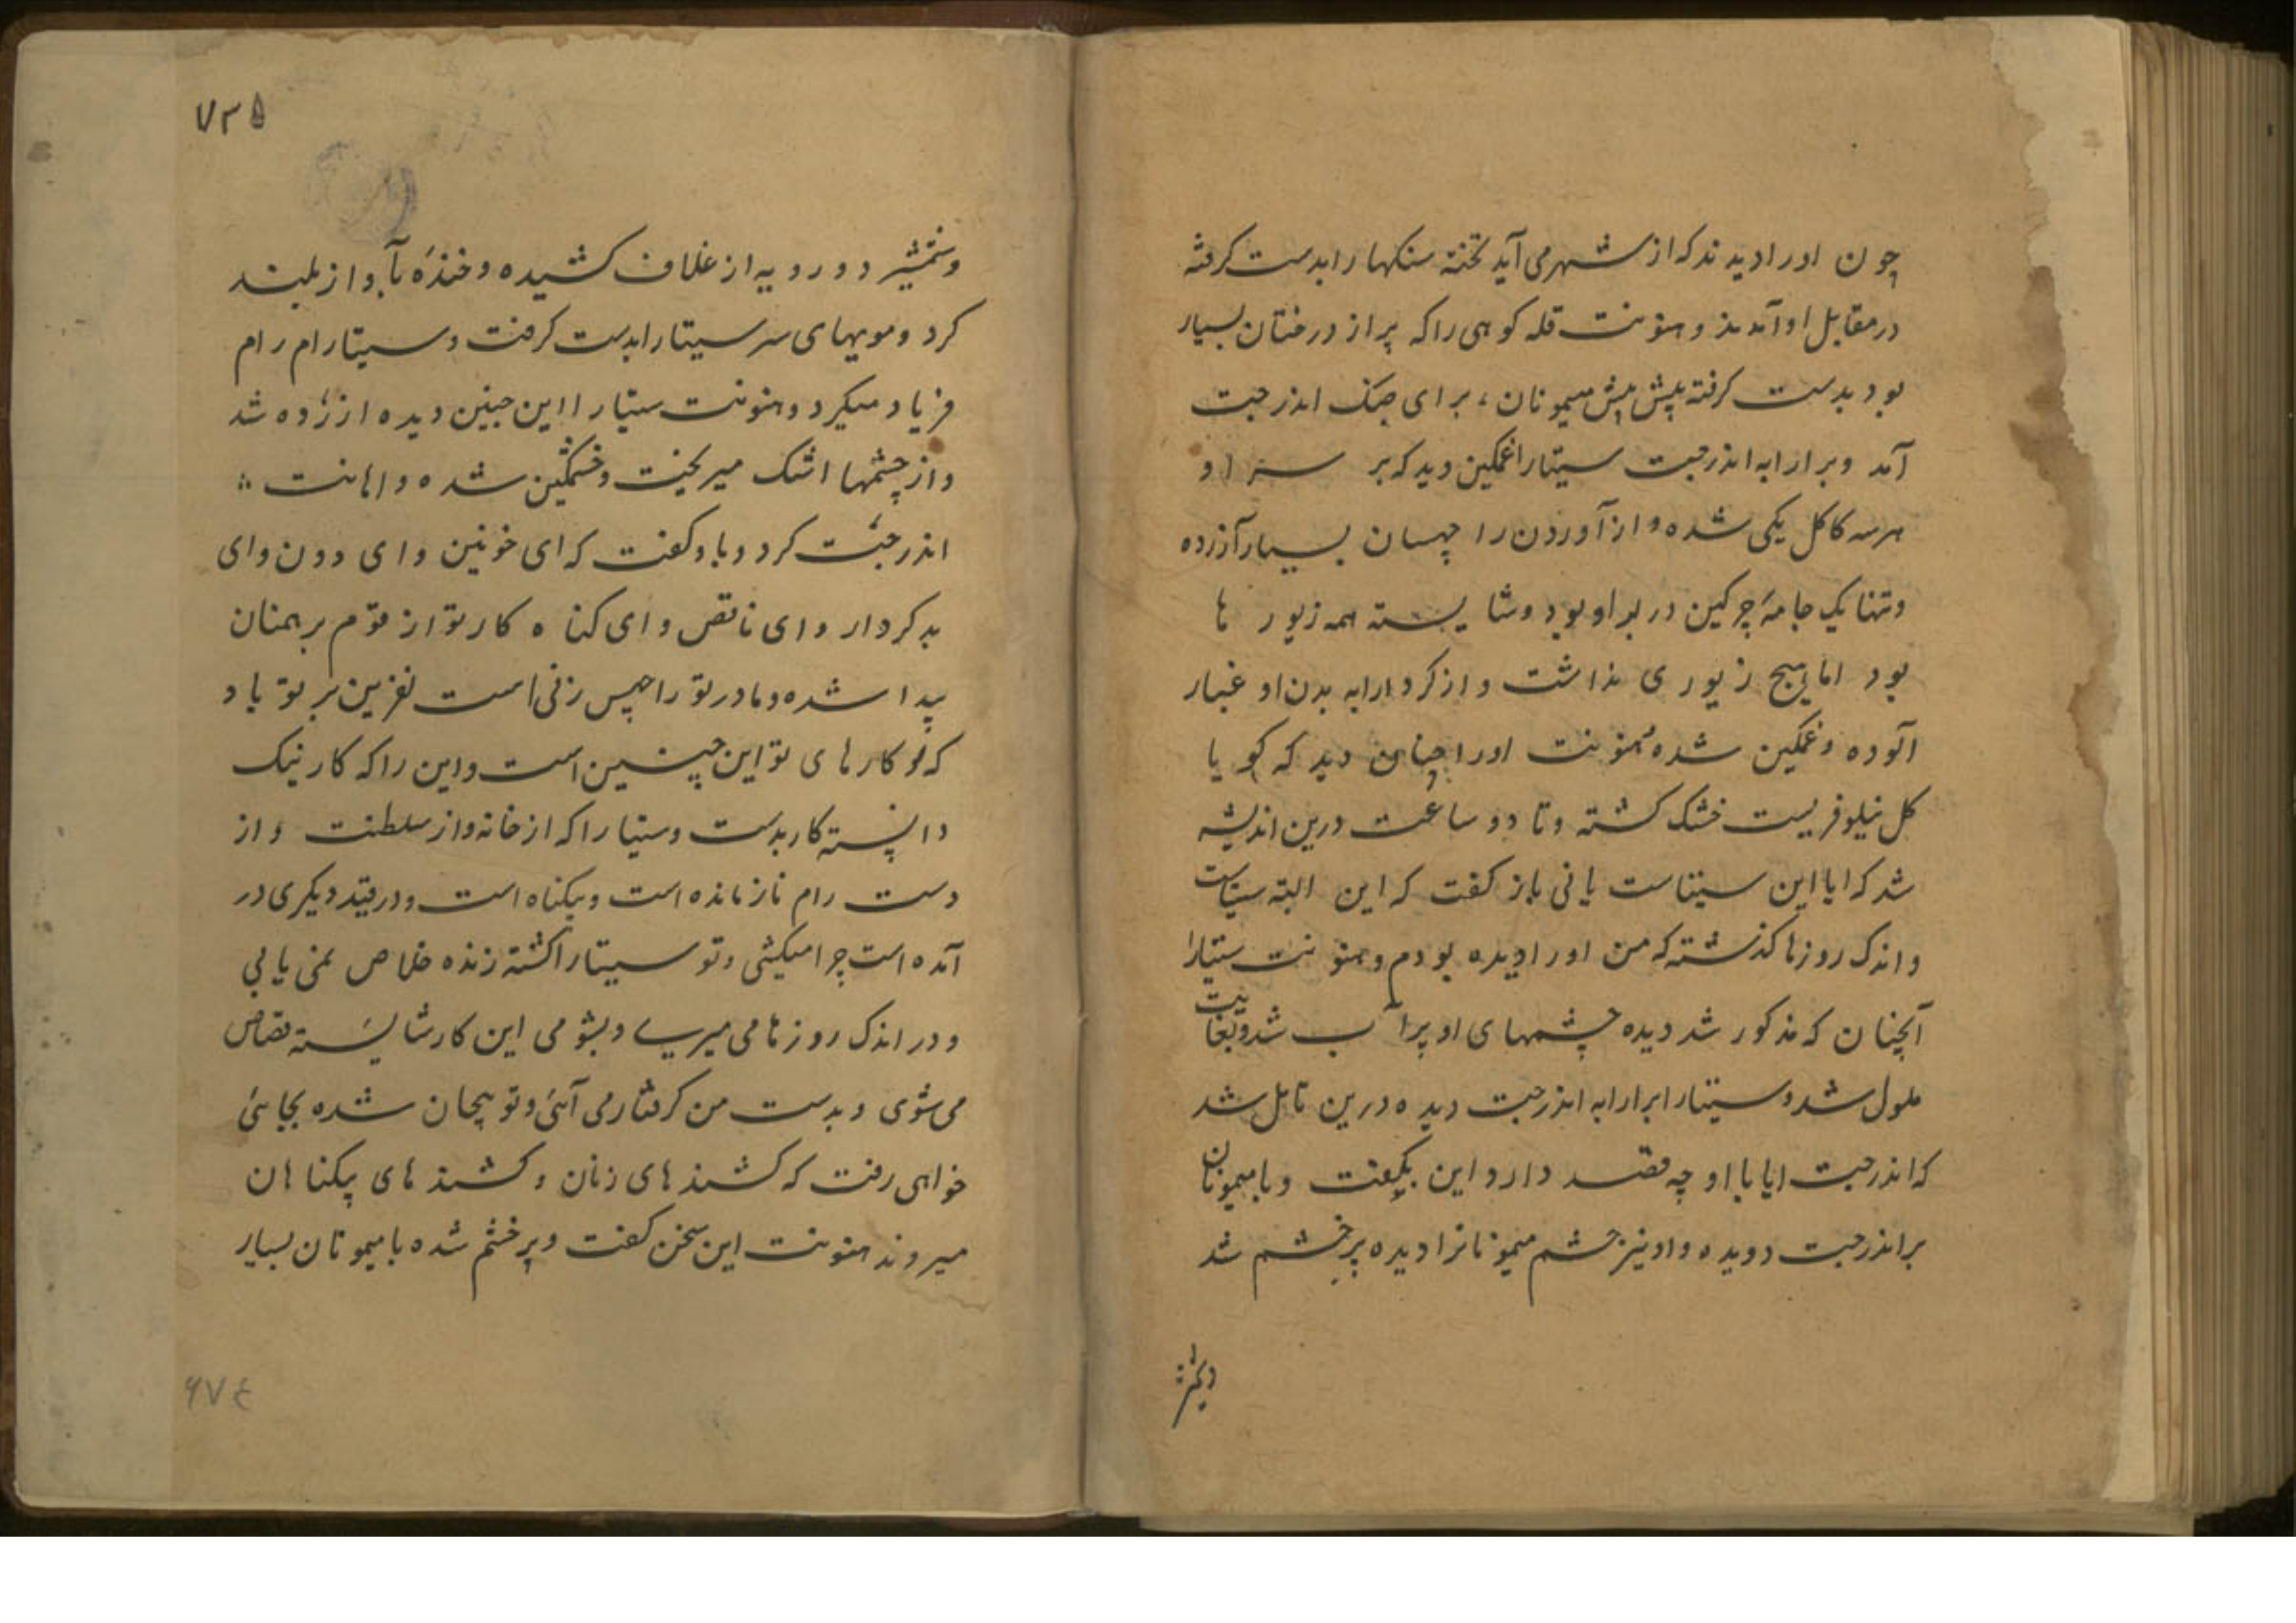 چون اورا دیدند که از شهر می آید تخته سنکها را بدست کرفته
در مقابل او آمدند و هنونت قله کوهی را که پر از درختان بسیار
بود بدست کرفته پیش پیش میمونان برای جنک اندرجیت
آمد و بر ارابه اندرجیت سیتا را غمکین دید که بر سر او
هر سه کاکل یکی شده و از آوردن را چهسان بسیار آزرده
و تنها یک جامهٔ چرکین در بر او بود و شایسته همه زیور ها
بود اما هیچ زیوری نداشت و از کرد ارابه بدن او غبار
آلوده و غمکین شده هنونت اورا چنان دید که کویا
کل نیلوفریست خشک کشته و تا دو ساعت درین اندیشه
شد که ایا این سیتاست یا نی باز کفت که این البته سیتاست
و اندک روزها کذشته که من اورا دیده بودم و هنونت سیتا را
آنچنان که مذکور شد دیده چشمهای او پر آب شد و بغایت
ملول شد و سیتا را بر ارابه اندرجیت دیده درین تامل شد
که اندرجیت ایا با او چه قصد دارد این بکفت و با میمونان
بر اندرجیت دویده و او نیز خشم میمونانرا دیده پر خشم شد
۷۳۵
و شمشیر دو رویه از غلاف کشیده و خندهٔ بآواز بلند
کرد و مویهای سر سیتا را بدست کرفت و سیتا رام رام
فریاد میکرد و هنونت سیتا را این چنین دیده ازرده شد
و از چشمها اشک میریخت و خشمکین شده و اهانت
اندرجیت کرد و باو کفت که ای خونین و ای دون و ای
بدکردار و ای ناقص و ای کناه کار تو از قوم برهمنان
پیدا شده و مادر تو راچهس زنی است نفرین بر تو باد
که کارهای تو این چنین است و این را که کار نیک
دانسته کار بدست و سیتا را که از خانه و از سلطنت و از
دست رام باز مانده است و بیکناه است و در قید دیکری در
آمده است چرا میکشی و تو سیتا را کشته زنده خلاص نمی یابی
و در اندک روزها می میری و بشومی این کار شایسته قصاص
می شوی و بدست من کرفتار می آئی و تو بیجان شده بجایی
خواهی رفت که کشنده های زنان و کشنده های بیکناهان
میروند هنونت این سخن کفت و پر خشم شده با میمونان بسیار
۶۷۴